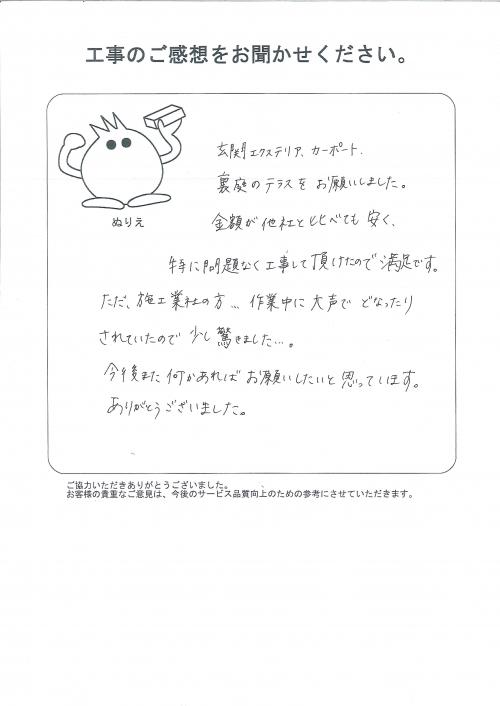 工事のご感想をお聞かせください。
ぬりえ
玄関エクステリア、カーポート、
裏庭のテラスをお願いしました。
金額が他社と比べても安く、
特に問題なく工事して頂けたので満足です。
ただ、施工業社の方…作業中に大声でどなったり
されていたので少し驚きました…。
今後また何かあればお願いしたいと思っています。
ありがとうございました。
ご協力いただきありがとうございました。
お客様の貴重なご意見は、今後のサービス品質向上のための参考にさせていただきます。